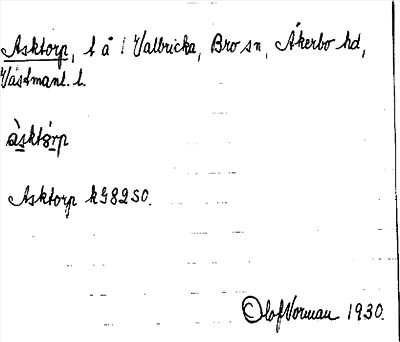 Asktorp, t å i Valbricka, Bro sn, Åkerbo hd,
Västmanl. l.
àsktórp
Asktorp kG82SO.
Olof Vorman 1930.